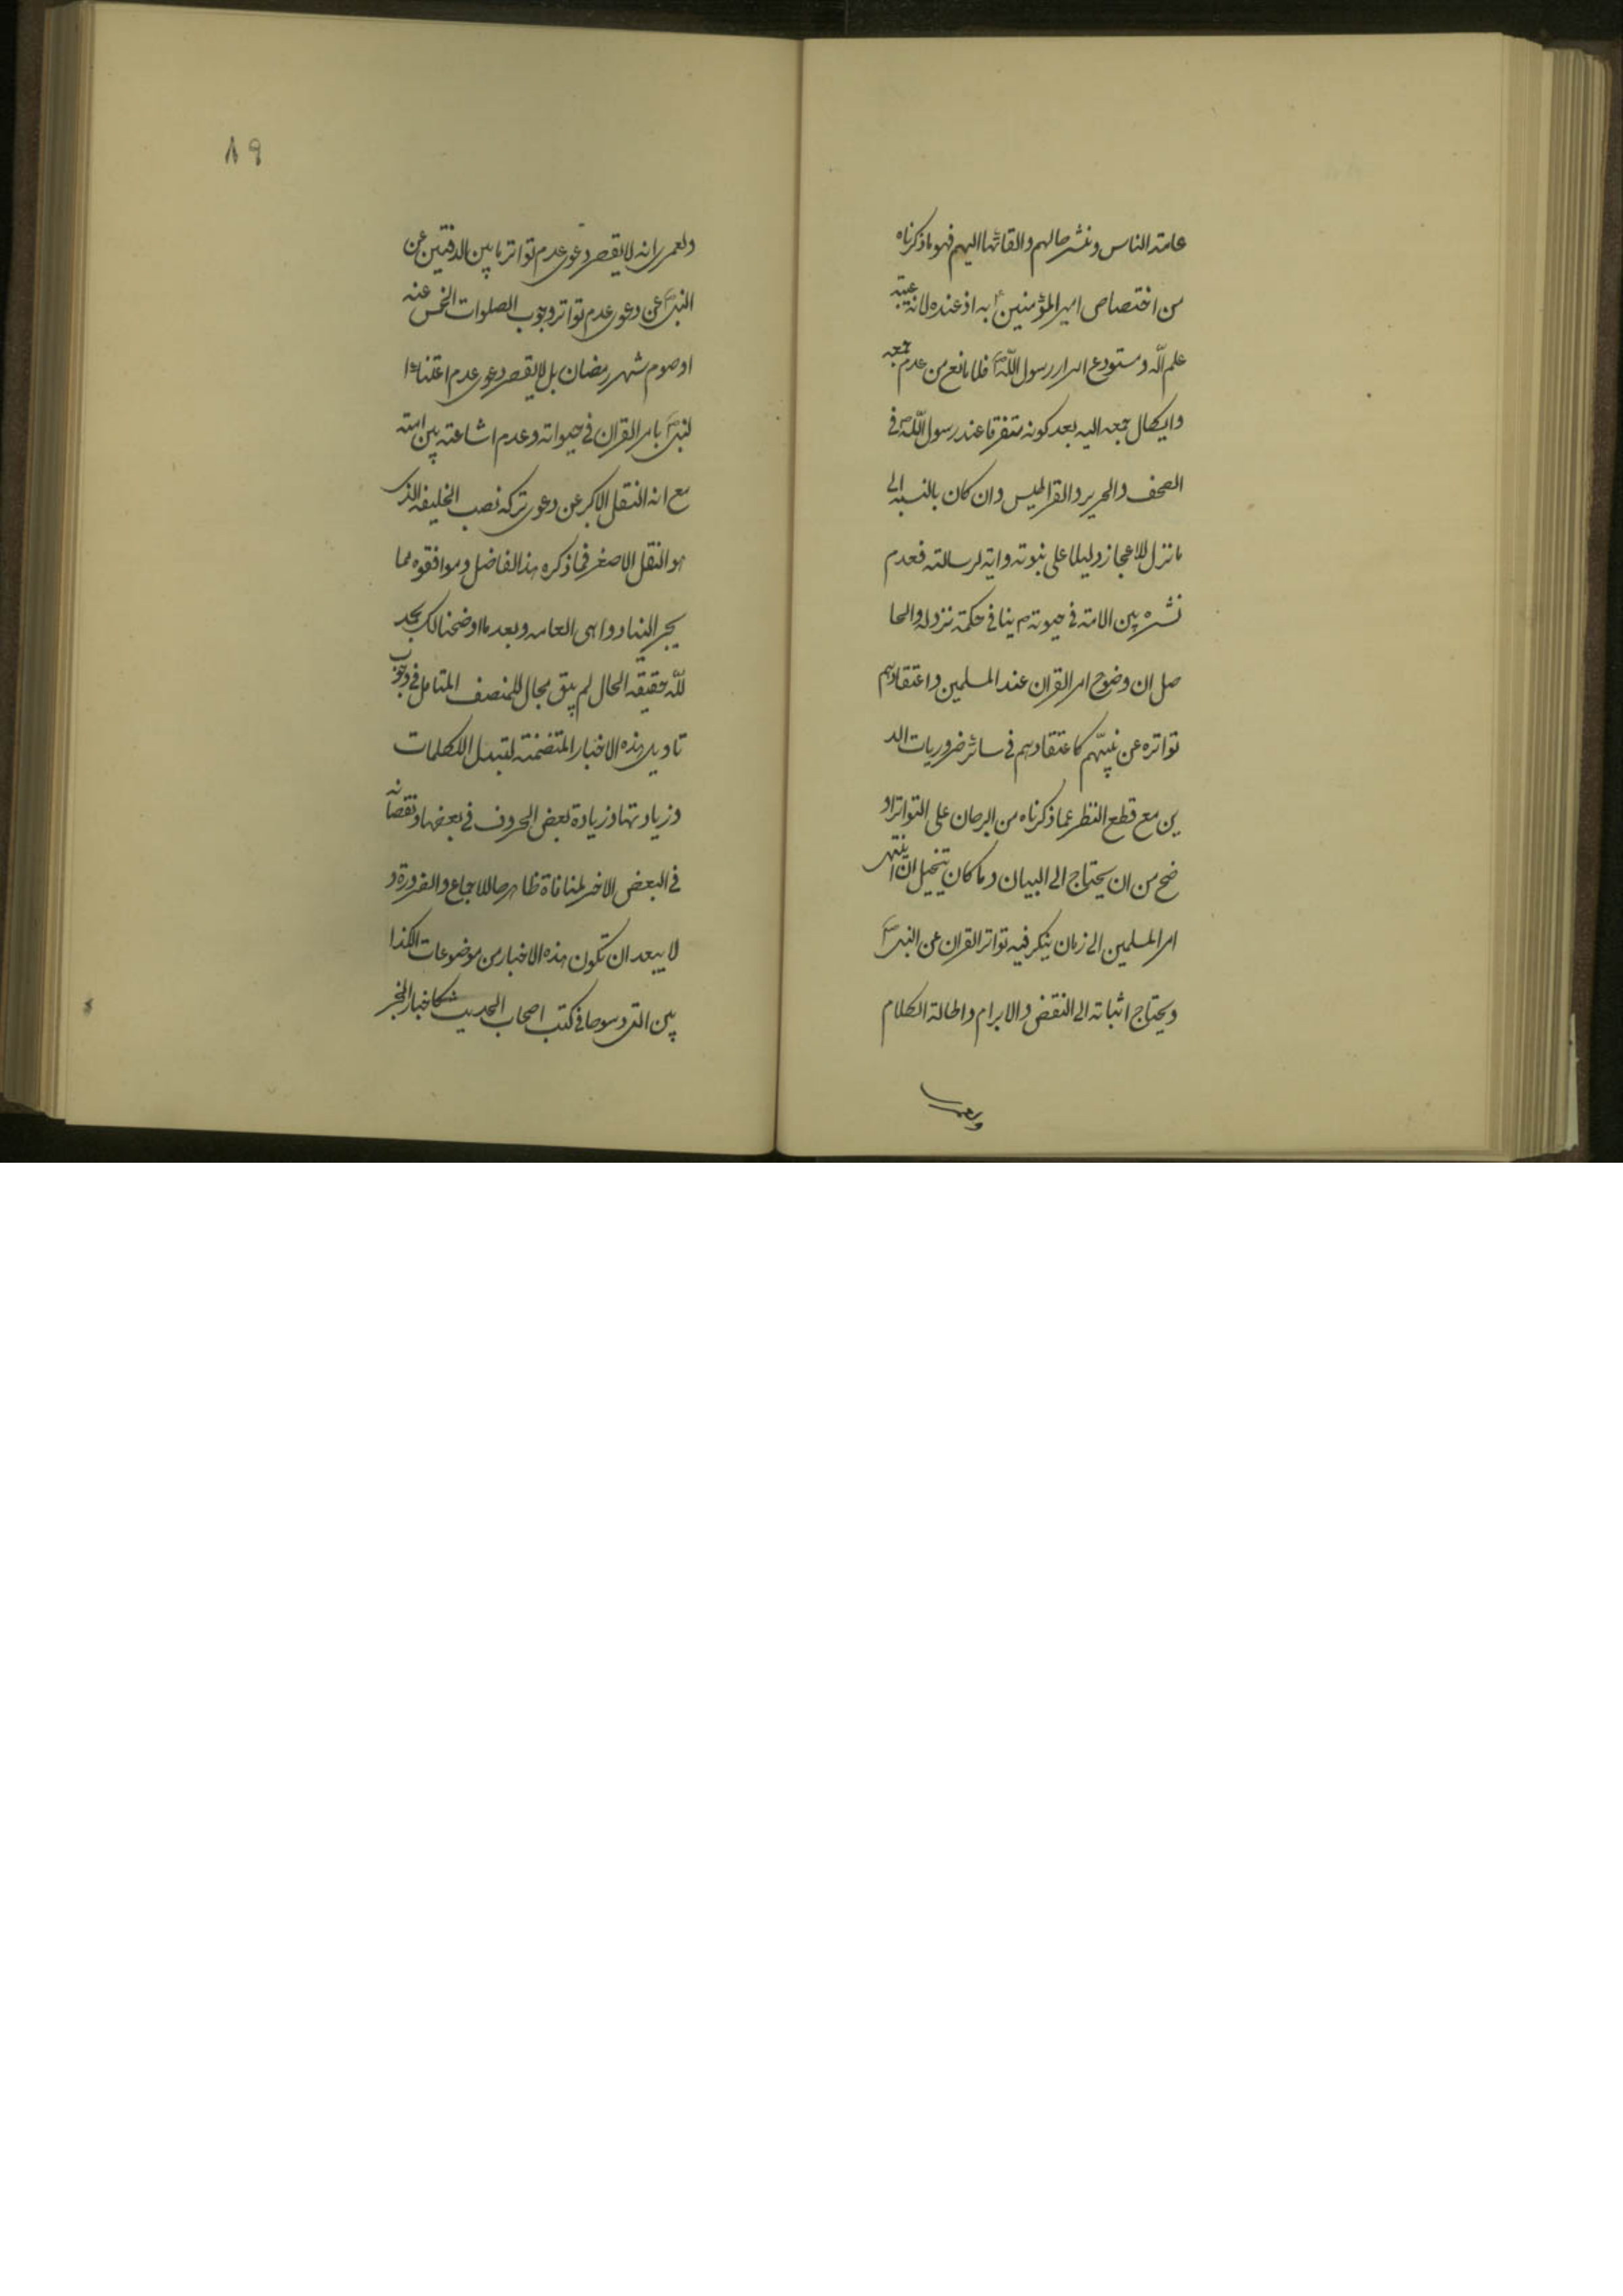 عامة الناس ونشرها لهم والقائها اليهم فهو ما ذكرناه
من اختصاص امير المؤمنين ع به اذ عنده لانه عيبة
علم الله ومستودع اسرار رسول اللهص فلا مانع من عدم جمعه
وايكال جمعه اليه بعد كونه متفرقا عند رسول اللهص في
الصحف والحرير والقراطيس وان كان بالنسبه الى
ما نزل للاعجاز ودليلا على نبوته واية لرسالته فعدم
نشره بين الامة في حيوته ص ينافي حكمة نزوله والحا
صل ان وضوح امر القران عند المسلمين واعتقادهم
تواتره عن نبيّهم كاعتقادهم في سائر ضروريات الد
ين مع قطع النظر عما ذكرناه من البرهان على التواتر او
ضح من ان يحتاج الى البيان وما كان يتخيل انّ ينتهى
امر المسلمين الى زمان ينكر فيه تواتر القران عن النبىص
ويحتاج اثباته الى النقض والابرام واطالة الكلام
ولعمرى
٨٩
ولعمرى انه لا يقصر دعوى عدم تواتر ما بين الدفتين عن
النبىص عن دعوى عدم تواتر وجوب الصلوات الخمس عنه
او صوم شهر رمضان بل لا يقصر دعوى عدم اعتناء ا
لنبىص بامر القران في حيواته وعدم اشاعته بين امته
مع انه الثقل الاكبر عن دعوى تركه نصب الخليفه الذى
هو الثقل الاصغر فما ذكره هذا الفاضل وموافقوه مما
يجر الينا دواهى العامه وبعد ما اوضحنا لك بحمد
للّه حقيقه الحال لم يبق مجال للمنصف المتامل في وجوب
تاويل هذه الاخبار المتضمنة لتبدل الكلمات
وزيادتها وزيادة بعض الحروف في بعضها ونقصانه
في البعض الاخر لمنافاة ظاهرها للاجماع والضرورة و
لا يبعد ان تكون هذه الاخبار من موضوعات الكذا
بين التى دسوها في كتب اصحاب الحديث كاخبار الجبر